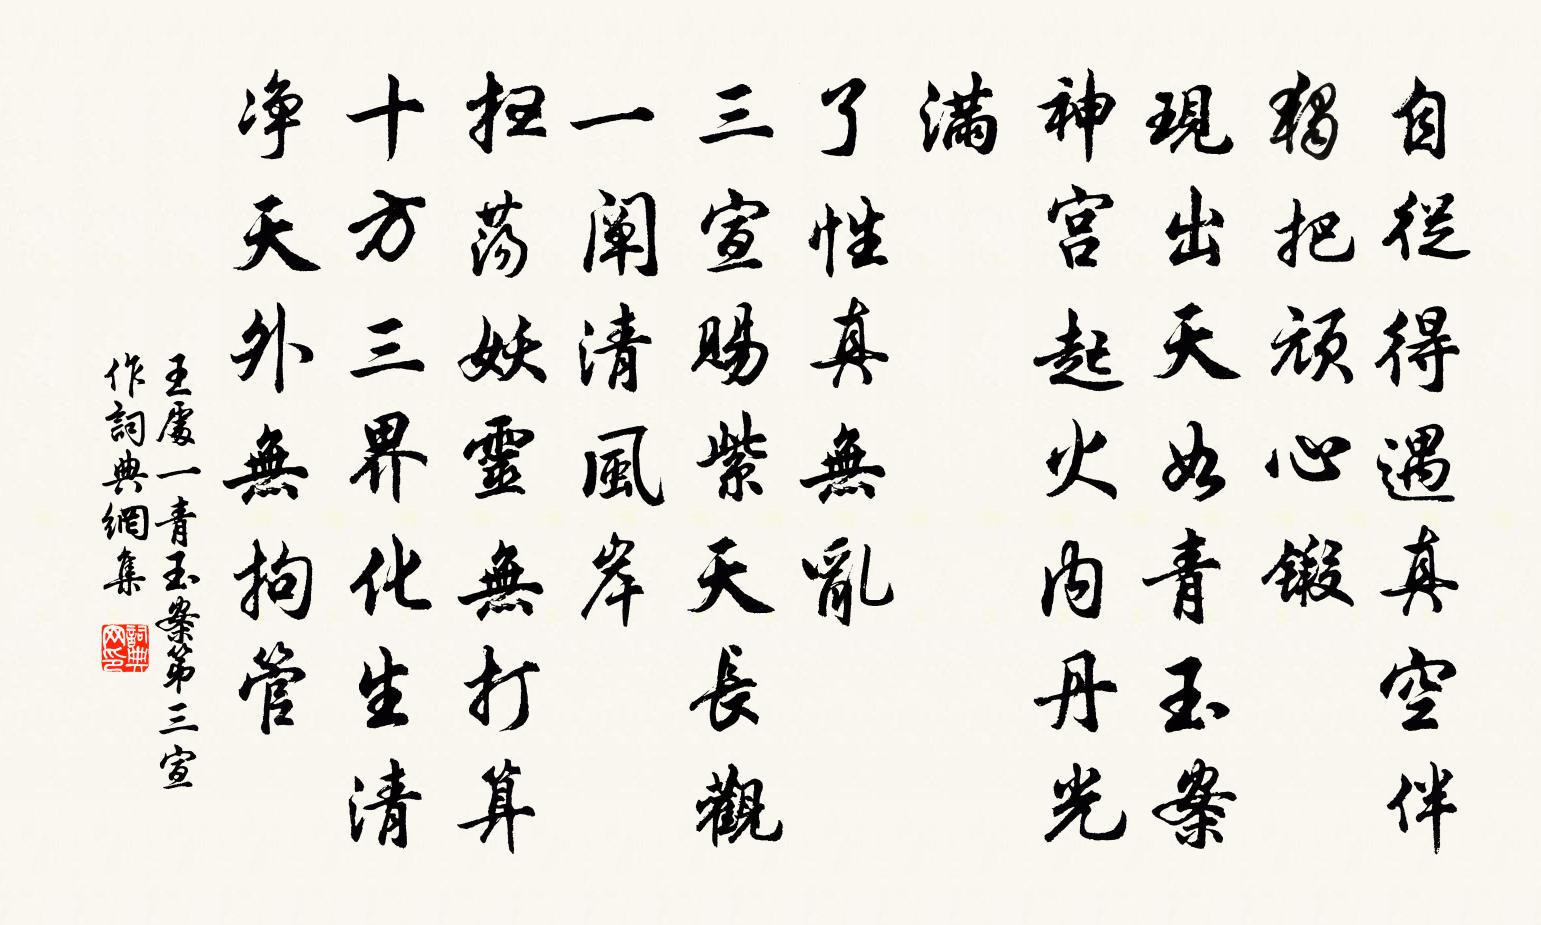 自從得遇真空伴
獨把頑心鍛
現出天如青玉案
神宮起火內丹光
滿
了性真無亂
三宣賜紫天長觀
一闡清風岸
掃蕩妖靈無打算
十方三界化生清
净天外無拘管
王處一青玉案第三宣
作詞典網集
詞典网印